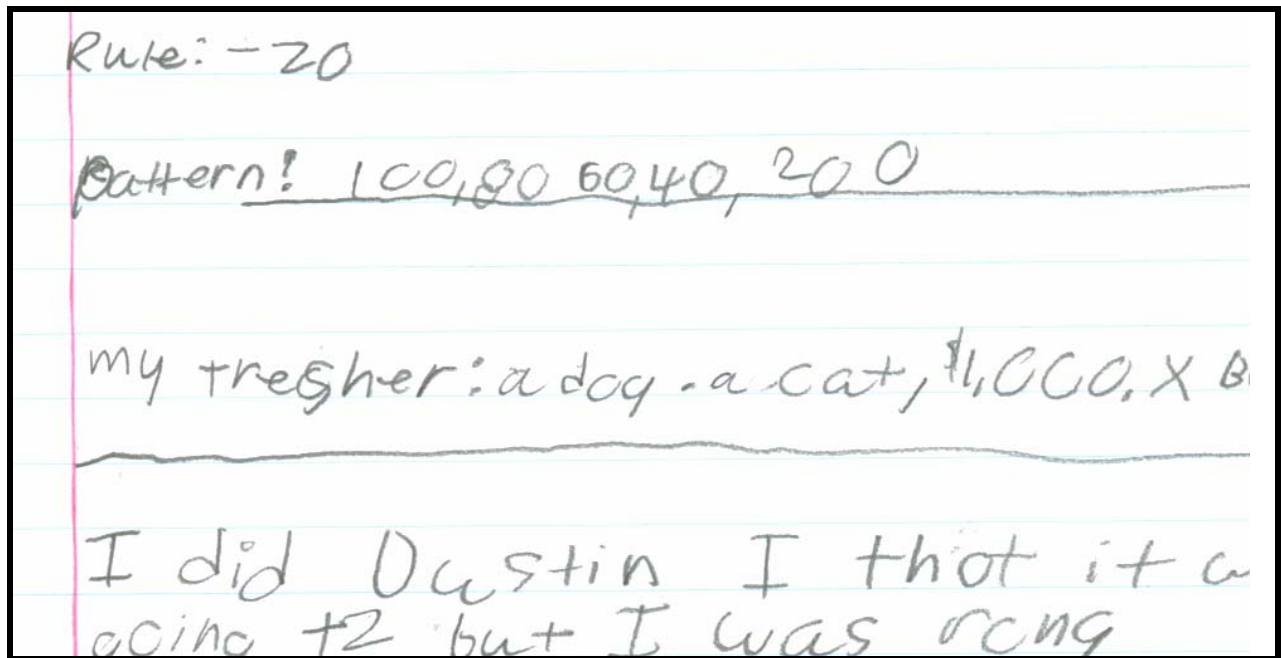 Rule: -20
pattern: 100,80 60,40, 20 0
my tresher: a dog. a cat, $1,000. X B
I did Dustin I thot it w
going +2 but I was rong